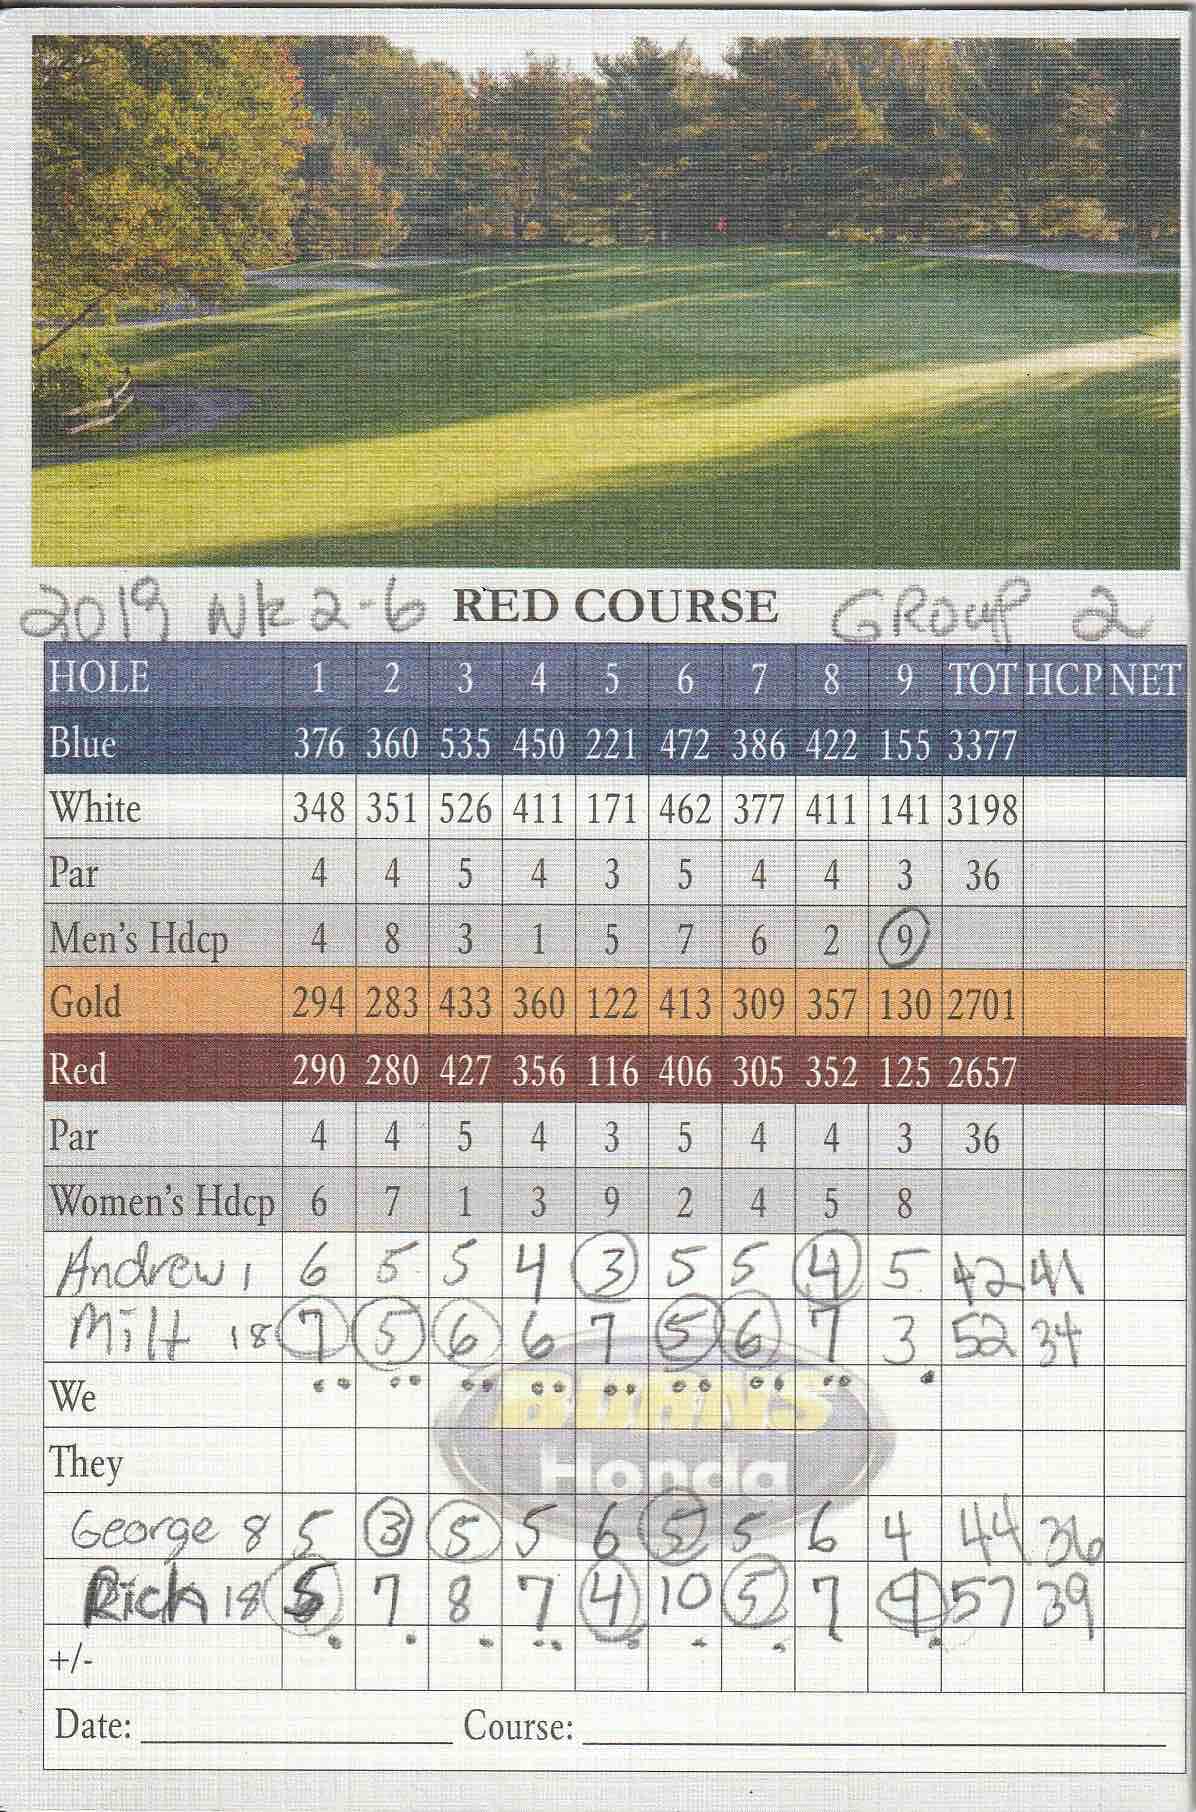 2019 Wk 2-6 RED COURSE GROUP 2
HOLE 1 2 3 4 5 6 7 8 9 TOT HCP NET
Blue 376 360 535 450 221 472 386 422 155 3377
White 348 351 526 411 171 462 377 411 141 3198
Par 4 4 5 4 3 5 4 4 3 36
Men's Hdcp 4 8 3 1 5 7 6 2 9
Gold 294 283 433 360 122 413 309 357 130 2701
Red 290 280 427 356 116 406 305 352 125 2657
Par 4 4 5 4 3 5 4 4 3 36
Women's Hdcp 6 7 1 3 9 2 4 5 8
Andrew 1 6 5 5 4 3 5 5 4 5 42 41
Milt 18 7 5 6 6 7 5 6 7 3 52 34
We
BURNS
They
Honda
George 8 5 3 5 5 6 5 5 6 4 44 36
Rich 18 5 7 8 7 4 10 5 7 4 57 39
+/-
Date: Course: